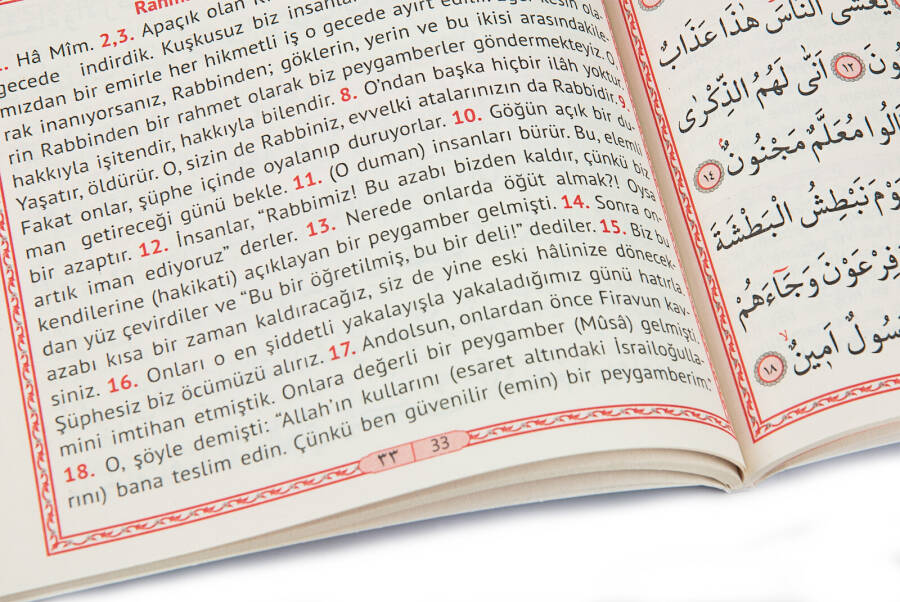 Hâ Mîm. 2,3. Apaçık olan
gecede indirdik. Kuşkusuz biz
mızdan bir emirle her hikmetli iş o gecede ayırt edilir. Eğer kesin ola-
rak inanıyorsanız, Rabbinden; göklerin, yerin ve bu ikisi arasındakile-
rin Rabbinden bir rahmet olarak biz peygamberler göndermekteyiz. O
hakkıyla işitendir, hakkıyla bilendir. 8. O’ndan başka hiçbir ilâh yoktur.
Yaşatır, öldürür. O, sizin de Rabbiniz, evvelki atalarınızın da Rabbidir. 9.
Fakat onlar, şüphe içinde oyalanıp duruyorlar. 10. Göğün açık bir du-
man getireceği günü bekle. 11. (O duman) insanları bürür. Bu, elemli
bir azaptır. 12. İnsanlar, “Rabbimiz! Bu azabı bizden kaldır, çünkü biz
artık iman ediyoruz” derler. 13. Nerede onlarda öğüt almak?! Oysa
kendilerine (hakikati) açıklayan bir peygamber gelmişti. 14. Sonra on-
dan yüz çevirdiler ve “Bu bir öğretilmiş, bu bir deli!” dediler. 15. Biz bu
azabı kısa bir zaman kaldıracağız, siz de yine eski hâlinize dönecek-
siniz. 16. Onları o en şiddetli yakalayışla yakaladığımız günü hatırla.
Şüphesiz biz öcümüzü alırız. 17. Andolsun, onlardan önce Firavun kav-
mini imtihan etmiştik. Onlara değerli bir peygamber (Mûsâ) gelmişti.
18. O, şöyle demişti: “Allah’ın kullarını (esaret altındaki İsrailoğulla-
rını) bana teslim edin. Çünkü ben güvenilir (emin) bir peygamberim.”
٣٣ 33
يَغْشَى النَّاسَ هٰذَا عَذَابٌ
١٢ اَنّٰى لَهُمُ الذِّكْرٰى
مُعَلَّمٌ مَجْنُونٌ ١٤
نَبْطِشُ الْبَطْشَةَ
فِرْعَوْنَ وَجَٓاءَهُمْ
اَمِينٌ ١٨